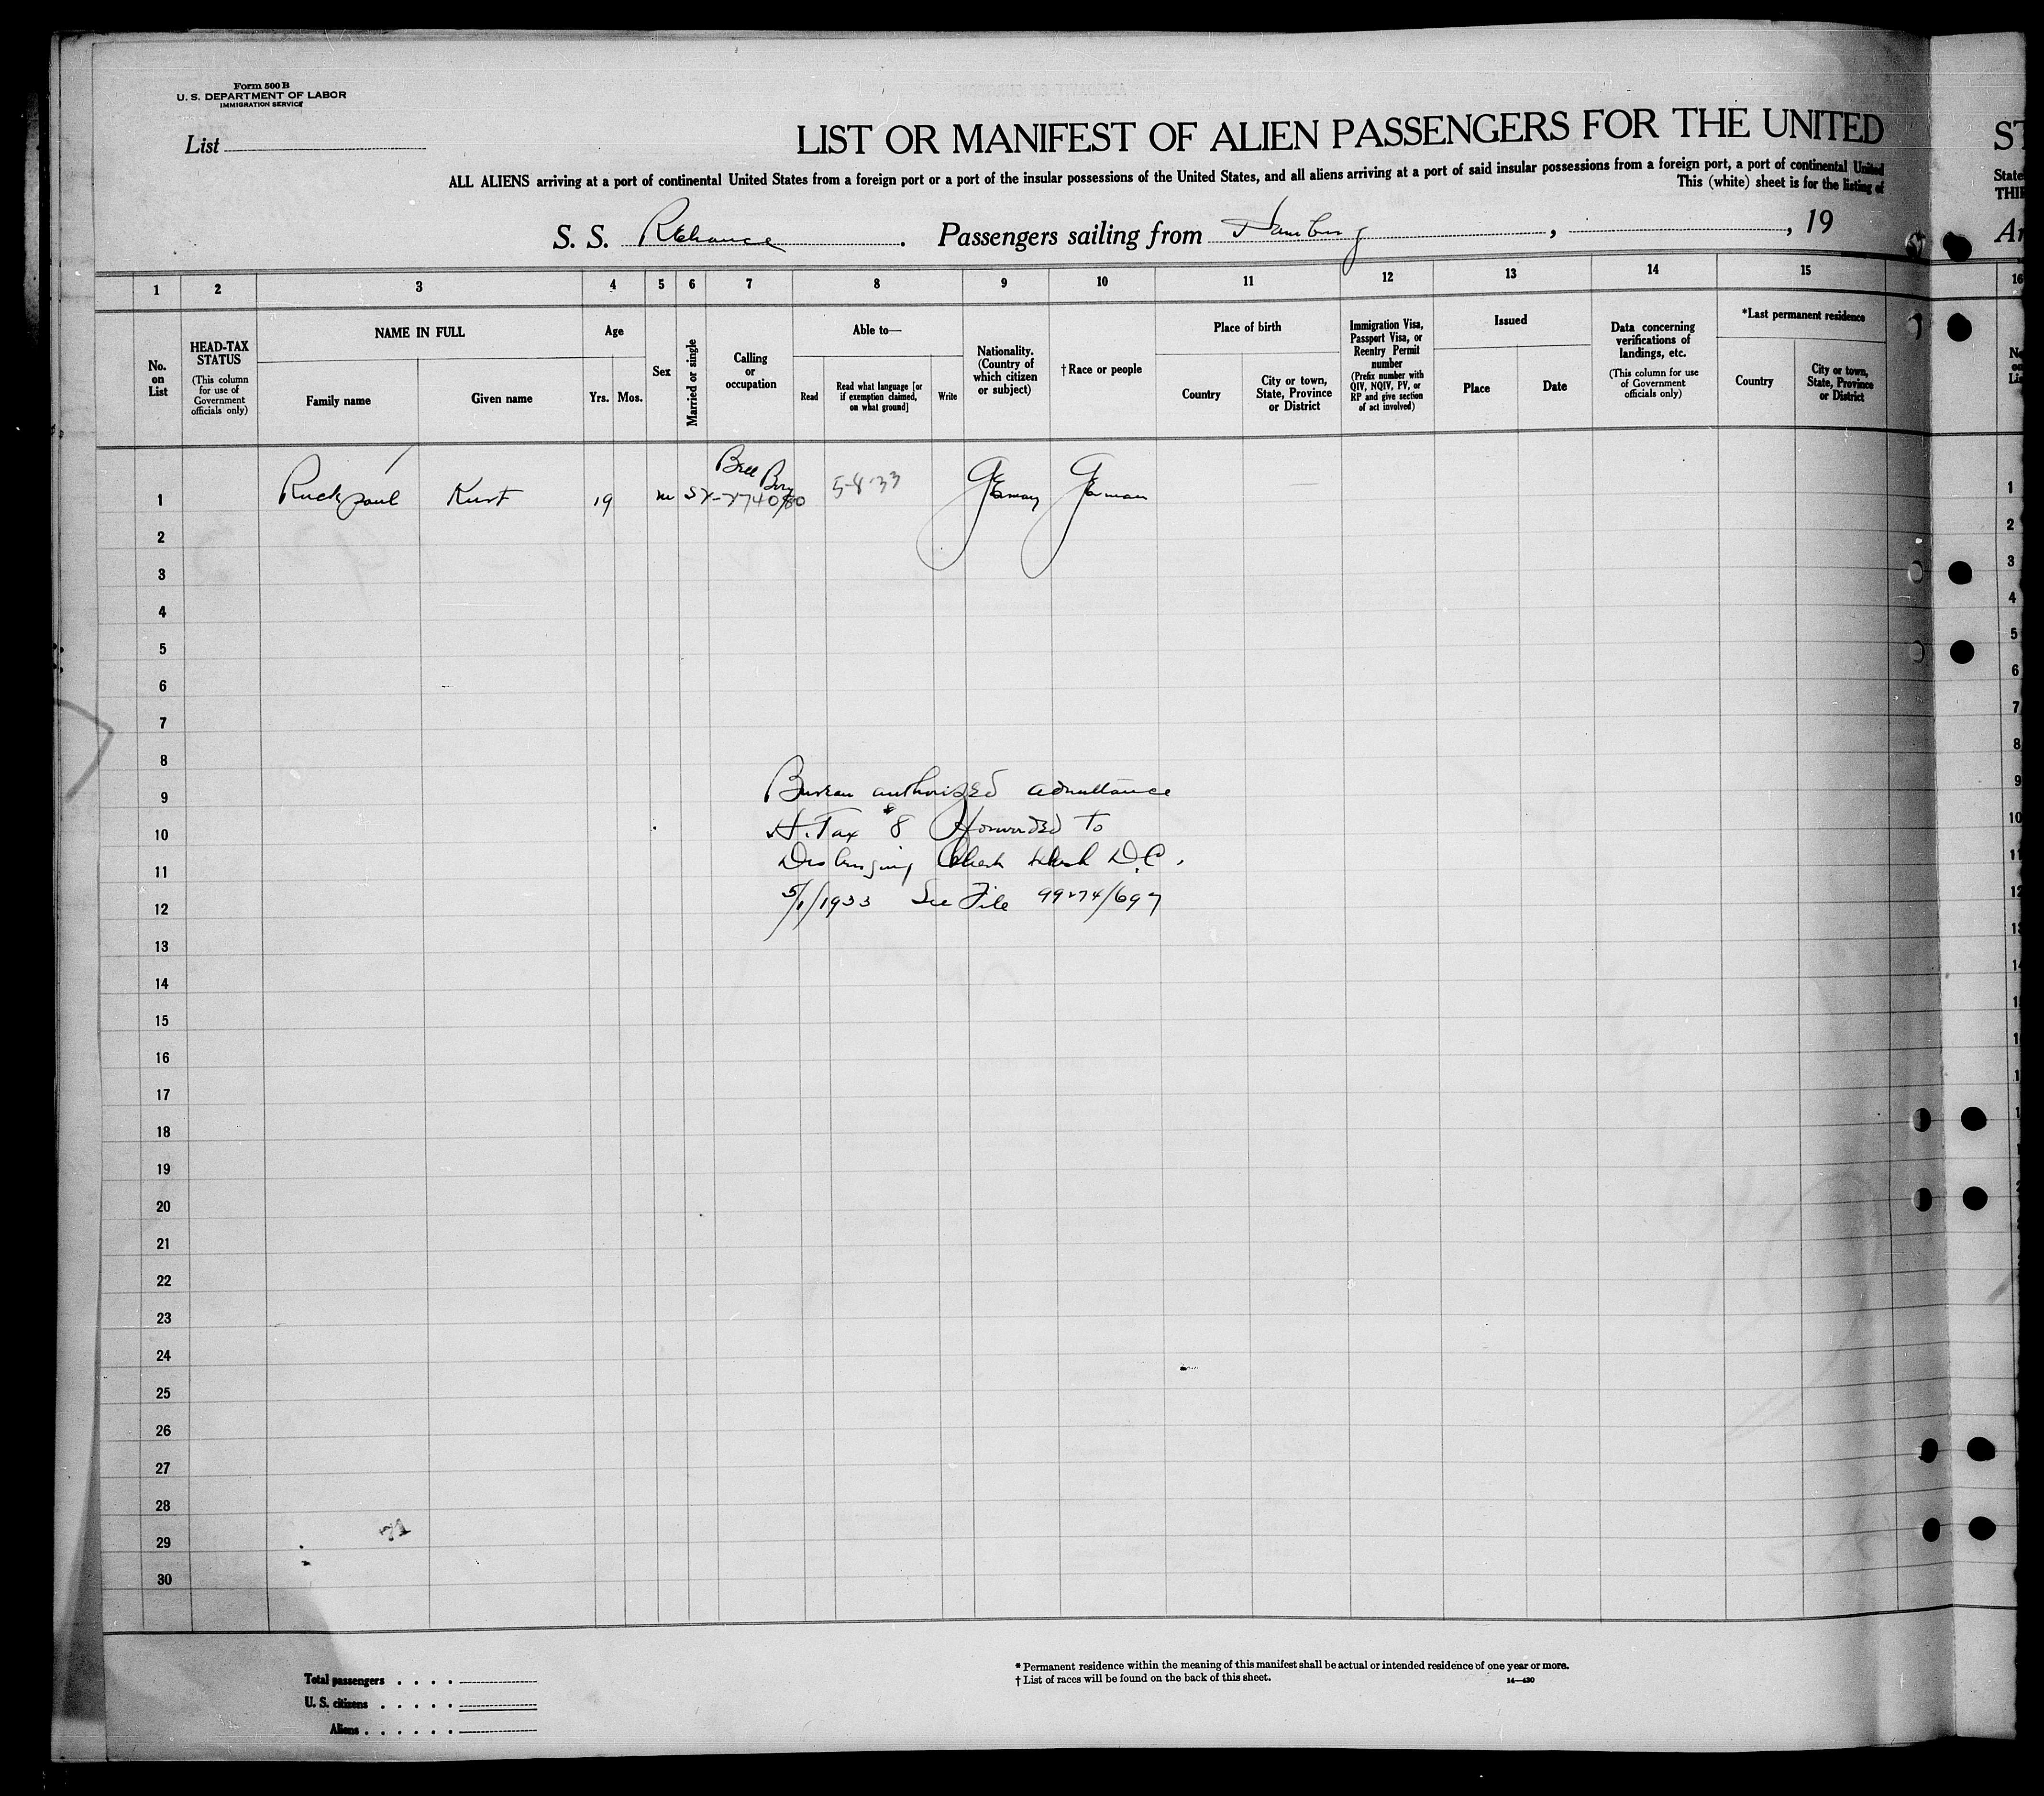 Form 500 B
U. S. DEPARTMENT OF LABOR
IMMIGRATION SERVICE
List
LIST OR MANIFEST OF ALIEN PASSENGERS FOR THE UNITED
ST
ALL ALIENS arriving at a port of continental United States from a foreign port or a port of the insular possessions of the United States, and all aliens arriving at a port of said insular possessions from a foreign port, a port of continental United
State
This (white) sheet is for the listing of
THI
S. S. Reliance . Passengers sailing from Hamburg , , 19
Ar
1 2 3 4 5 6 7 8 9 10 11 12 13 14 15 16
No. on List
HEAD-TAX STATUS
(This column for use of Government officials only)
NAME IN FULL
Family name
Given name
Age
Yrs.
Mos.
Sex
Married or single
Calling or occupation
Able to—
Read
Read what language [or if exemption claimed, on what ground]
Write
Nationality. (Country of which citizen or subject)
† Race or people
Place of birth
Country
City or town, State, Province or District
Immigration Visa, Passport Visa, or Reentry Permit number
(Prefix number with QIV, NQIV, PV, or RP and give section of act involved)
Issued
Place
Date
Data concerning verifications of landings, etc.
(This column for use of Government officials only)
*Last permanent residence
Country
City or town, State, Province or District
Bell Boy
1 Ruckpaul Kurt 19 m S 5-8-33 Germany German 1
2 2
3 3
4 4
5 5
6 6
7 7
8 8
9 9
Bureau authorized admittance
10 10
H. Tax $8 Forwarded to
11 11
Disbursing Clerk Wash D.C.
12 12
5/1/1933 See File 99274/697
13
14
15
16
17
18
19
20
21
22
23
24
25
26
27
28
29
30
Total passengers . . . .
U. S. citizens . . . . .
Aliens . . . . . .
* Permanent residence within the meaning of this manifest shall be actual or intended residence of one year or more.
† List of races will be found on the back of this sheet.
14—430